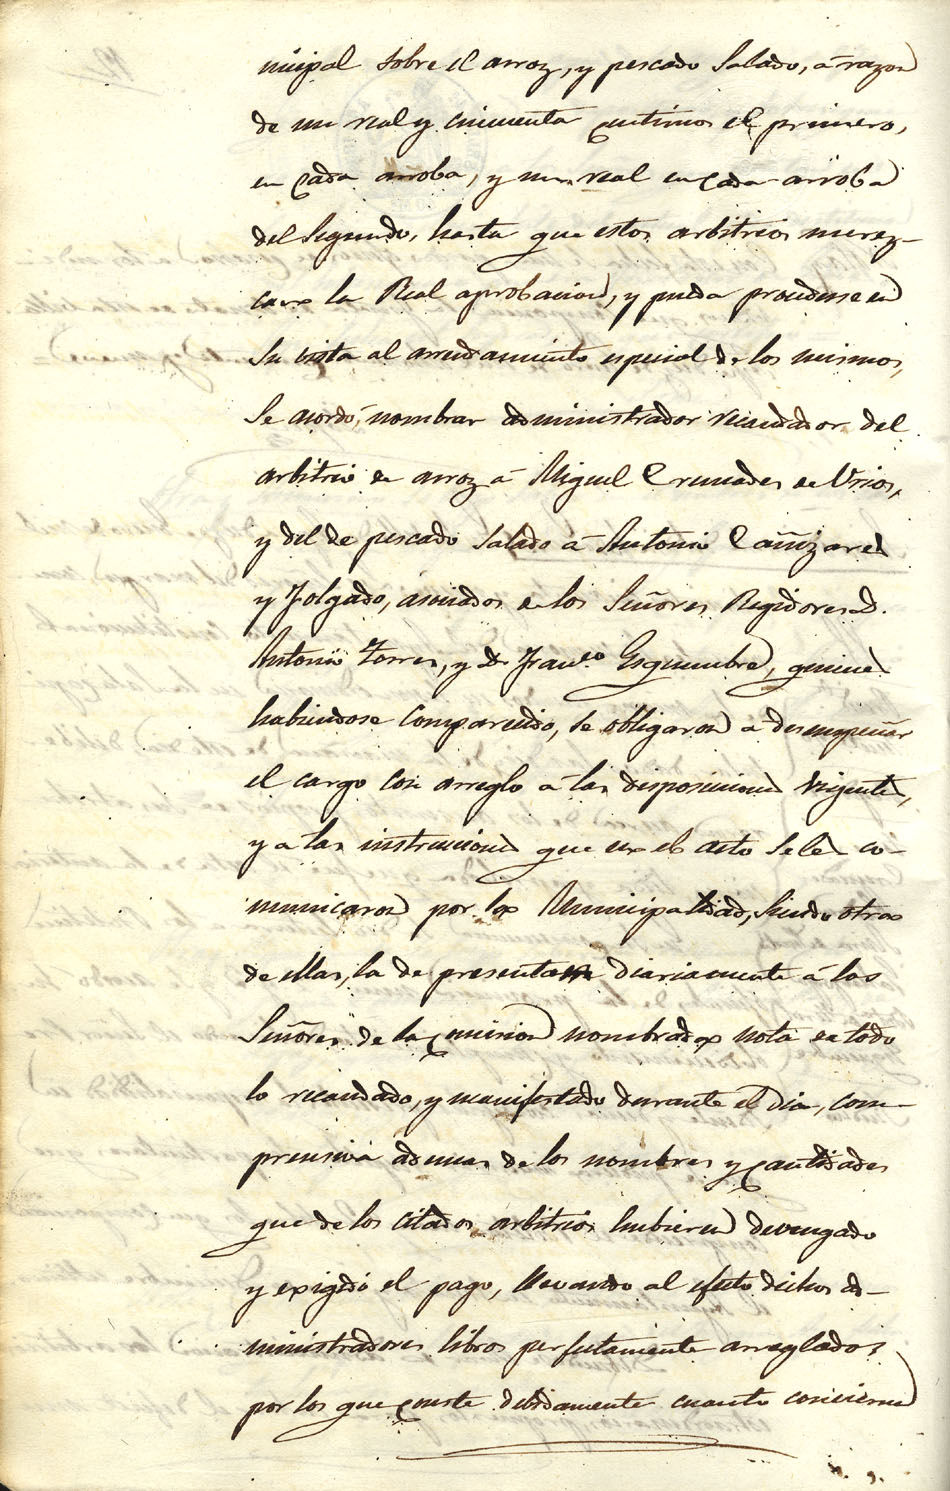 nicipal sobre el arroz, y pescado salado, á razon
de un real y cincuenta centimos el primero,
en cada arroba, y un real en cada arroba
del segundo, hasta que estos arbitrios merez-
can la Real aprobacion, y pueda procederse en
su vista al arrendamiento especial de los mismos,
se acordó, nombrar administrador recaudador del
arbitrio de arroz á Miguel Cremades de Urios,
y del de pescado salado á Antonio Cañizares
y Folgado, asociados de los Señores Regidores D.
Antonio Torres, y D. Franco. Esquembre, quienes
habiendose comparecido, se obligaron a desempeñar
el cargo con arreglo á las disposiciones vigentes,
y a las instrucciones que en el acto se les co-
municaron por la Municipalidad, siendo otra
de ellas, la de presentar diariamente á los
Señores de la comision nombrada nota de todo
lo recaudado, y manifestado durante el dia, com-
prensiva ademas de los nombres y cantidades
que de los citados arbitrios hubieren devengado
y exigido el pago, llevando al efecto dichos ad-
ministradores libros perfectamente arreglados
por los que conste debidamente cuanto concierne